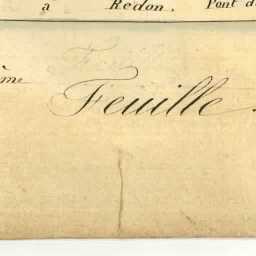 a Redon. Pont d
ème Feuille.